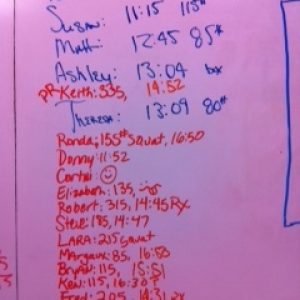 Susan: 11:15 115#
Matt: 12:45 85#
Ashley: 13:04 box
PR-Keith: 335, 14:52
Theresa: 13:09 80#
Ronda, 155# squat, 16:50
Donny: 11:52
☺
Elizabeth: 135,
Robert: 315, 14:45 Rx
Steve: 185, 14:47
LARA: 215 squat
Margaux: 85, 16:58
Bryan: 115, 15:51
Ken: 115, 16:30
Fred: 205, 14:31